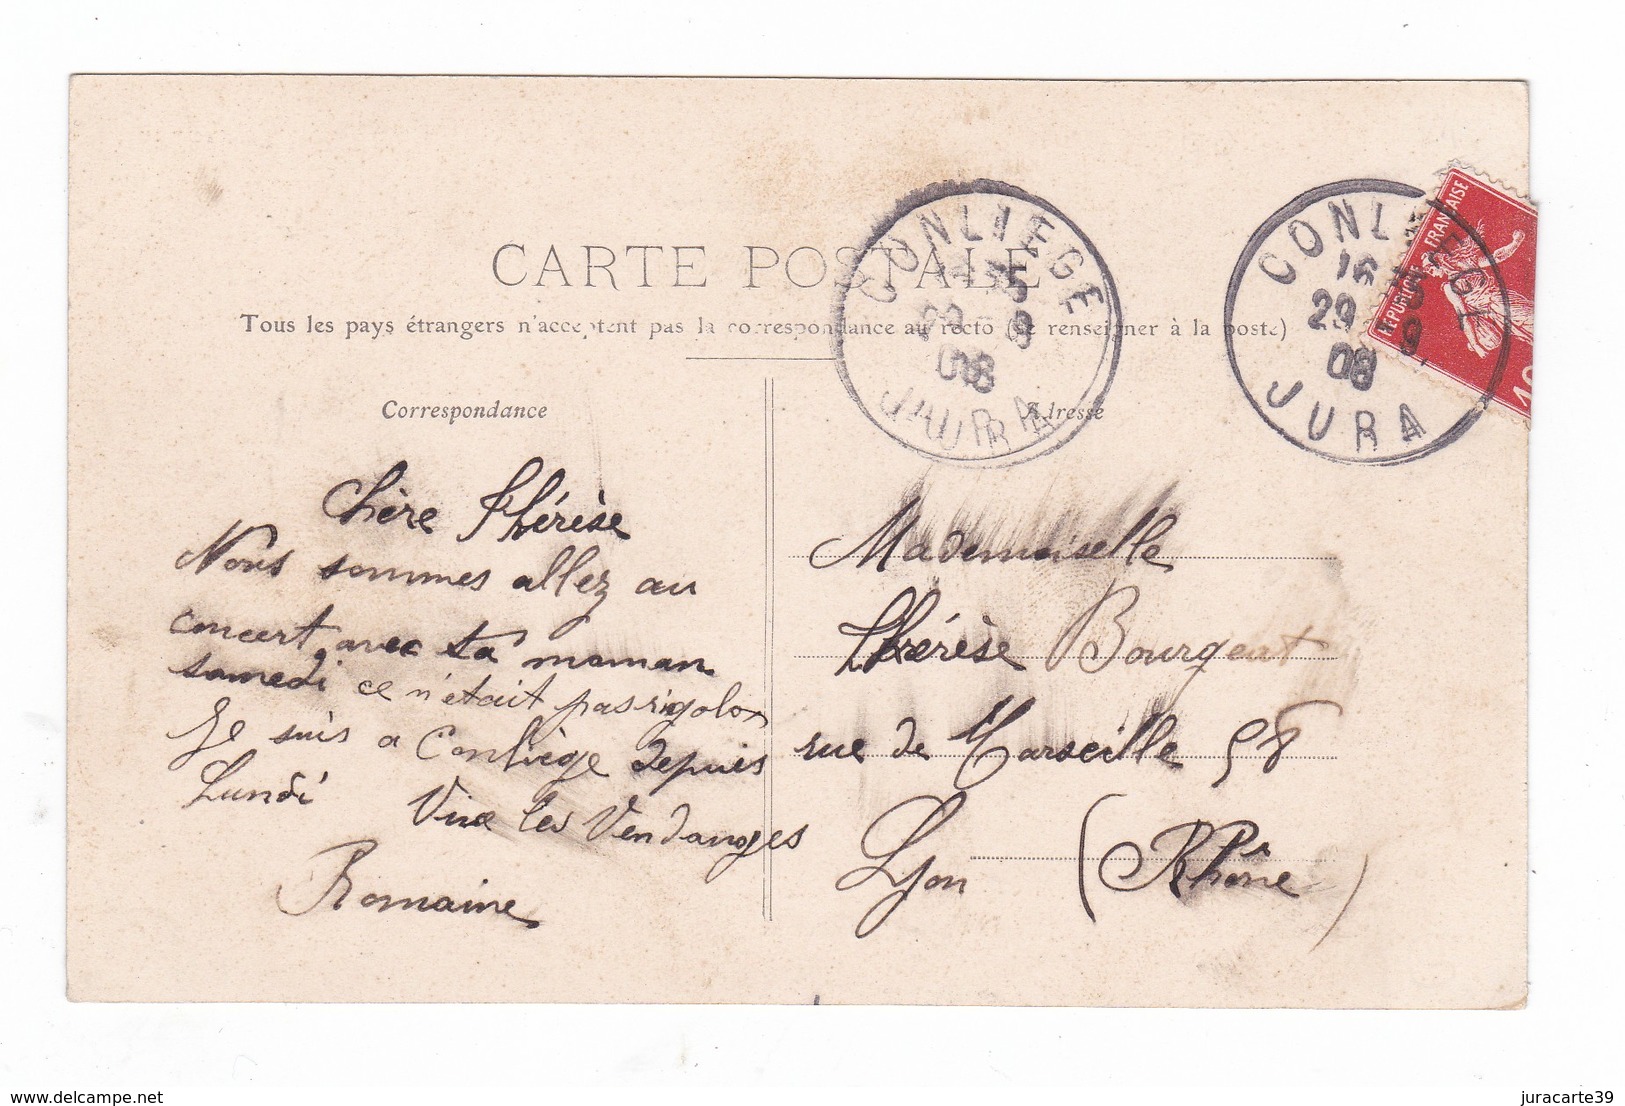 CARTE POSTALE
Tous les pays étrangers n'acceptent pas la correspondance au recto (Se renseigner à la poste)
Correspondance
Adresse
CONLIEGE
JURA
CONLIEGE
16
29 9
08
JURA
REPUBLIQUE FRANÇAISE
10
Chère Thérèse
Nous sommes allez au
concert avec ta maman
samedi ce n'était pas rigolo
Je suis a Conliège depuis
Lundi Vive les Vendanges
Romaine
Mademoiselle
Thérèse Bourgeat
rue de Marseille 58
Lyon (Rhône)
www.delcampe.net
juracarte39